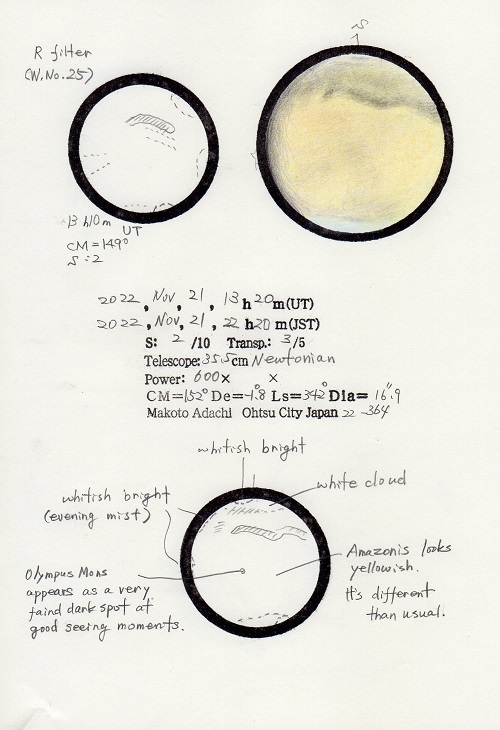 R filter
(W.No.25)
S
13h10m UT
CM=149°
S=2
2022, Nov, 21, 13h20m(UT)
2022, Nov, 21, 22h20m(JST)
S: 2 /10 Transp.: 3/5
Telescope: 35.5cm Newtonian
Power: 600× ×
CM=152° De=-1.8° Ls=342° Dia=16.9"
Makoto Adachi Ohtsu City Japan 22-364
whitish bright
white cloud
whitish bright
(evening mist)
Olympus Mons
appears as a very
faind dark spot at
good seeing moments.
Amazonis looks
yellowish.
It's different
than usual.